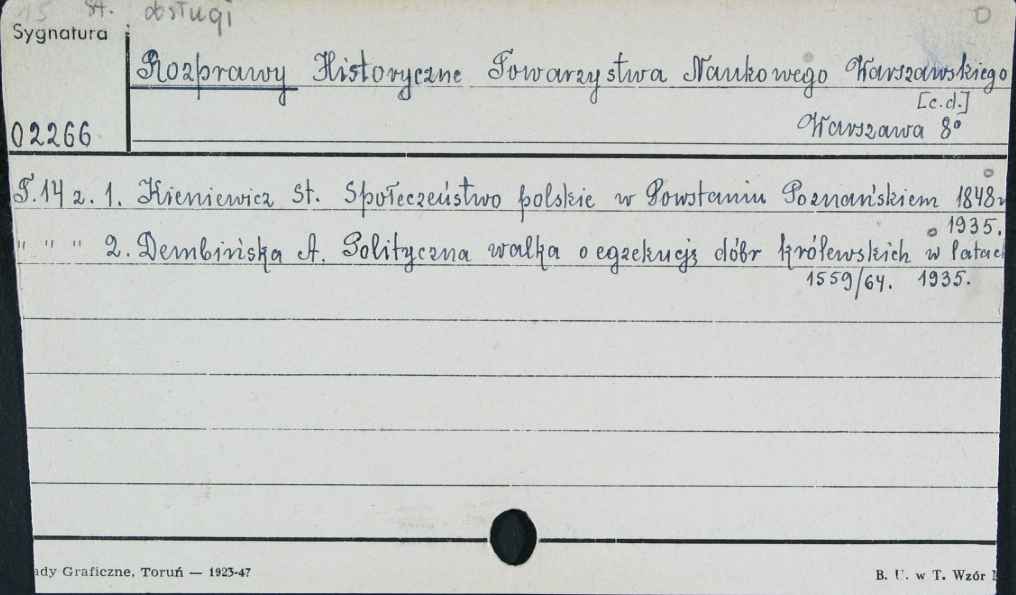 15 st. obsługi
Sygnatura
Rozprawy Historyczne Towarzystwa Naukowego Warszawskiego
[c.d.]
02266
Warszawa 8°
T. 14 z. 1. Kieniewicz St. Społeczeństwo polskie w Powstaniu Poznańskiem 1848r
1935.
" " " 2. Dembińska A. Polityczna walka o egzekucję dóbr królewskich w latach
1559/64. 1935.
ady Graficzne, Toruń — 1923-47
B. U. w T. Wzór